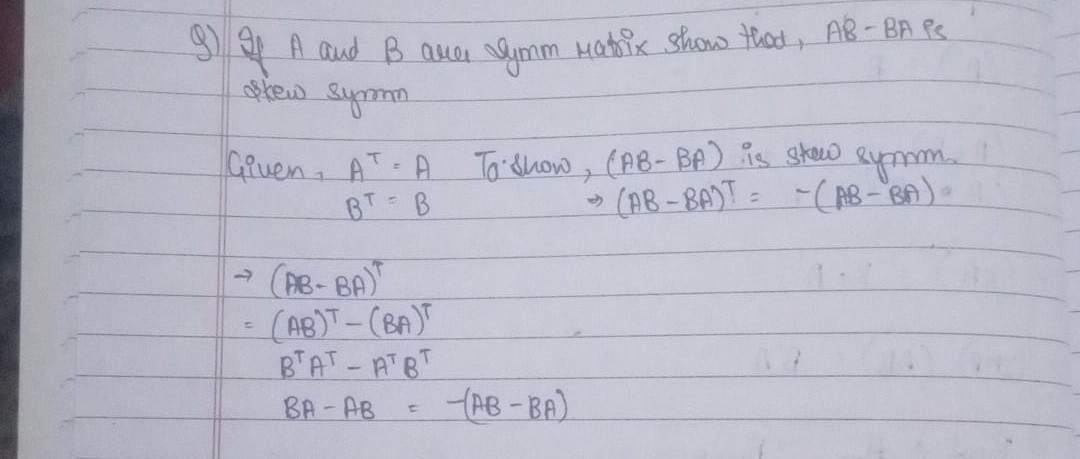 9) If A and B are symm Matrix show that, AB - BA is
skew symm
Given, Aᵀ = A To show, (AB - BA) is skew symm.
Bᵀ = B → (AB - BA)ᵀ = -(AB - BA)
→ (AB - BA)ᵀ
= (AB)ᵀ - (BA)ᵀ
BᵀAᵀ - AᵀBᵀ
BA - AB = -(AB - BA)